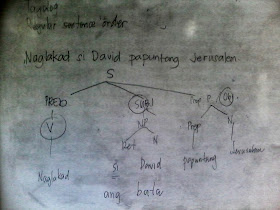 Tagalog
Regular sentence order
Naglakad si David papuntang Jerusalem
S
PRED Subj Prep P Obj
V NP Prep N
Det N
Naglakad si David papuntang Jerusalem
ang bata